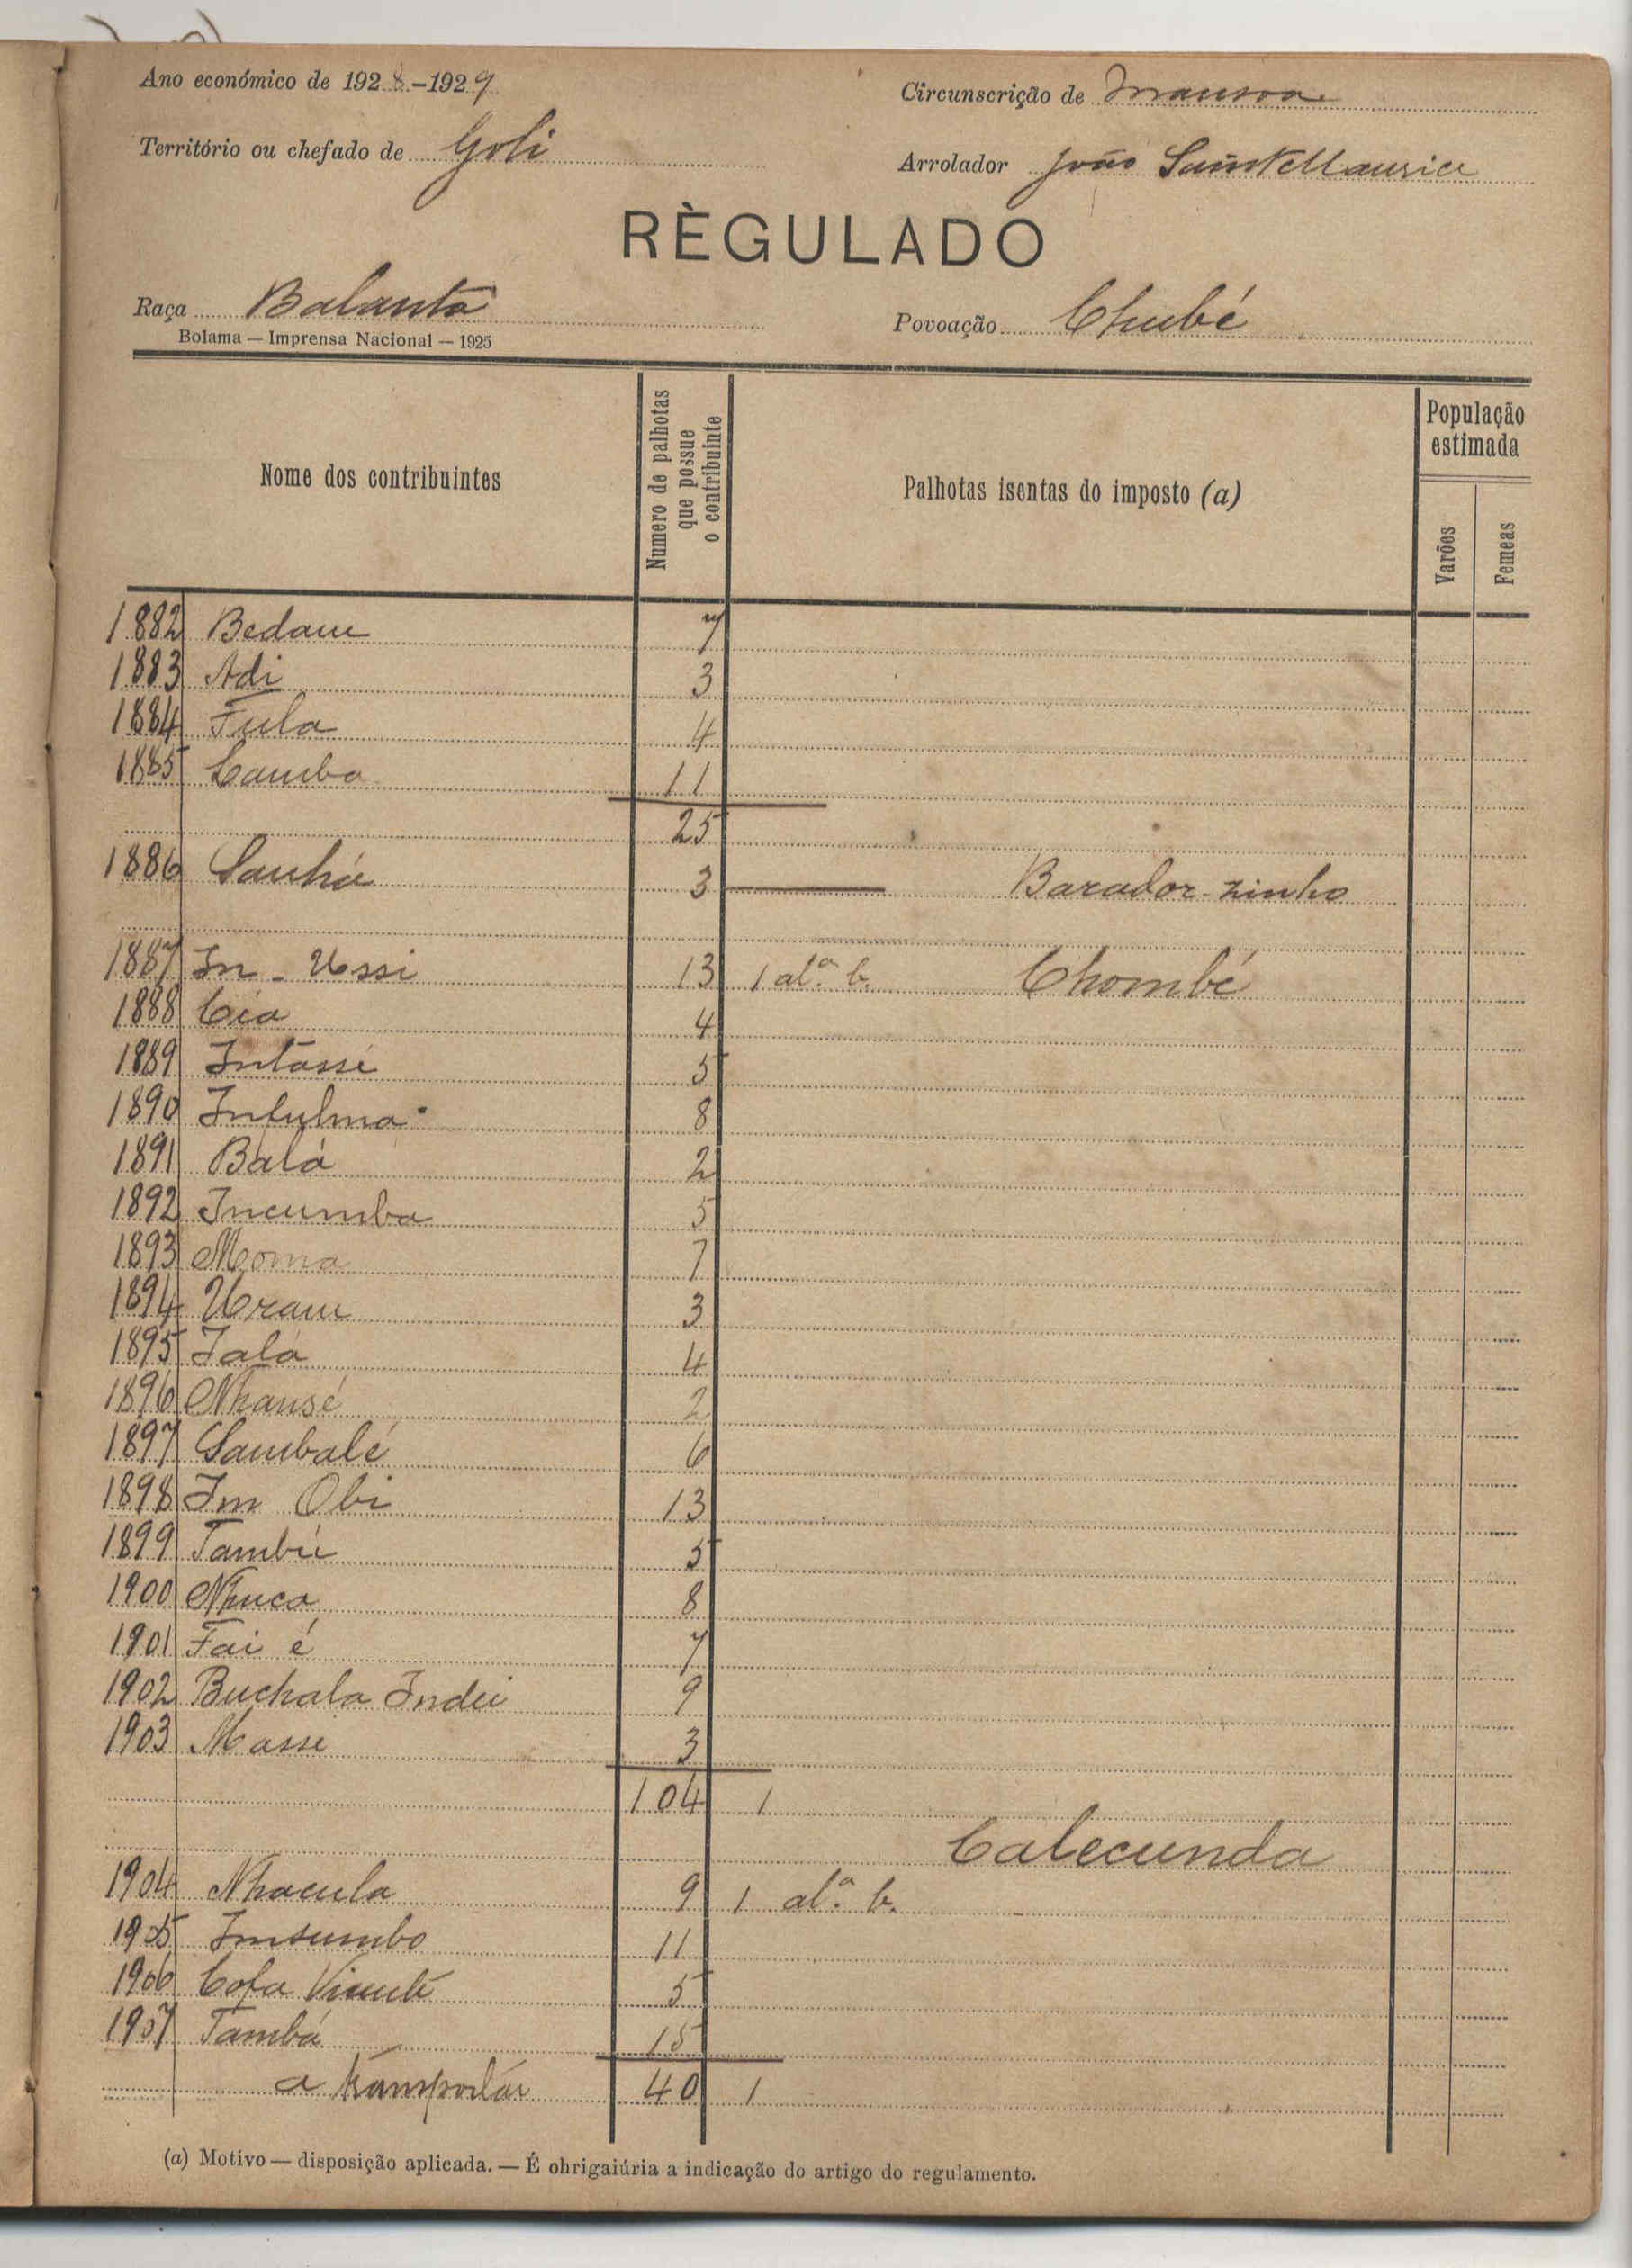 Ano económico de 1928-1929
Circunscrição de Mansoa
Território ou chefado de Goli
Arrolador João
RÈGULADO
Raça Balanta
Povoação Chubé
Bolama — Imprensa Nacional — 1925
Nome dos contribuintes
Numero de palhotas que possue o contribuinte
Palhotas isentas do imposto (a)
População estimada
Varões
Femeas
1882 Bedam 7
1883 Adi 3
1884 Fula 4
1885 Camba 11
25
1886 Sanhá 3 Barador-zinho
1887 In-Ussi 13 1 al.ª b. Chombé
1888 Cia 4
1889 Intassé 5
1890 Infulma 8
1891 Balá 2
1892 Incumba 5
1893 Moma 7
1894 Uram 3
1895 Jalá 4
1896 Nhansé 2
1897 Sambalé 6
1898 Im Obi 13
1899 Tambú 5
1900 Nhuca 8
1901 Fai é 7
1902 Buchala Indei 9
1903 Massi 3
104 1
Calecunda
1904 Nhacula 9 1 al.ª b.
1905 Imsumbo 11
1906 Cofa 5
1907 Tambá 15
a transportár 40 1
(a) Motivo — disposição aplicada. — É ohrigaiúria a indicação do artigo do regulamento.